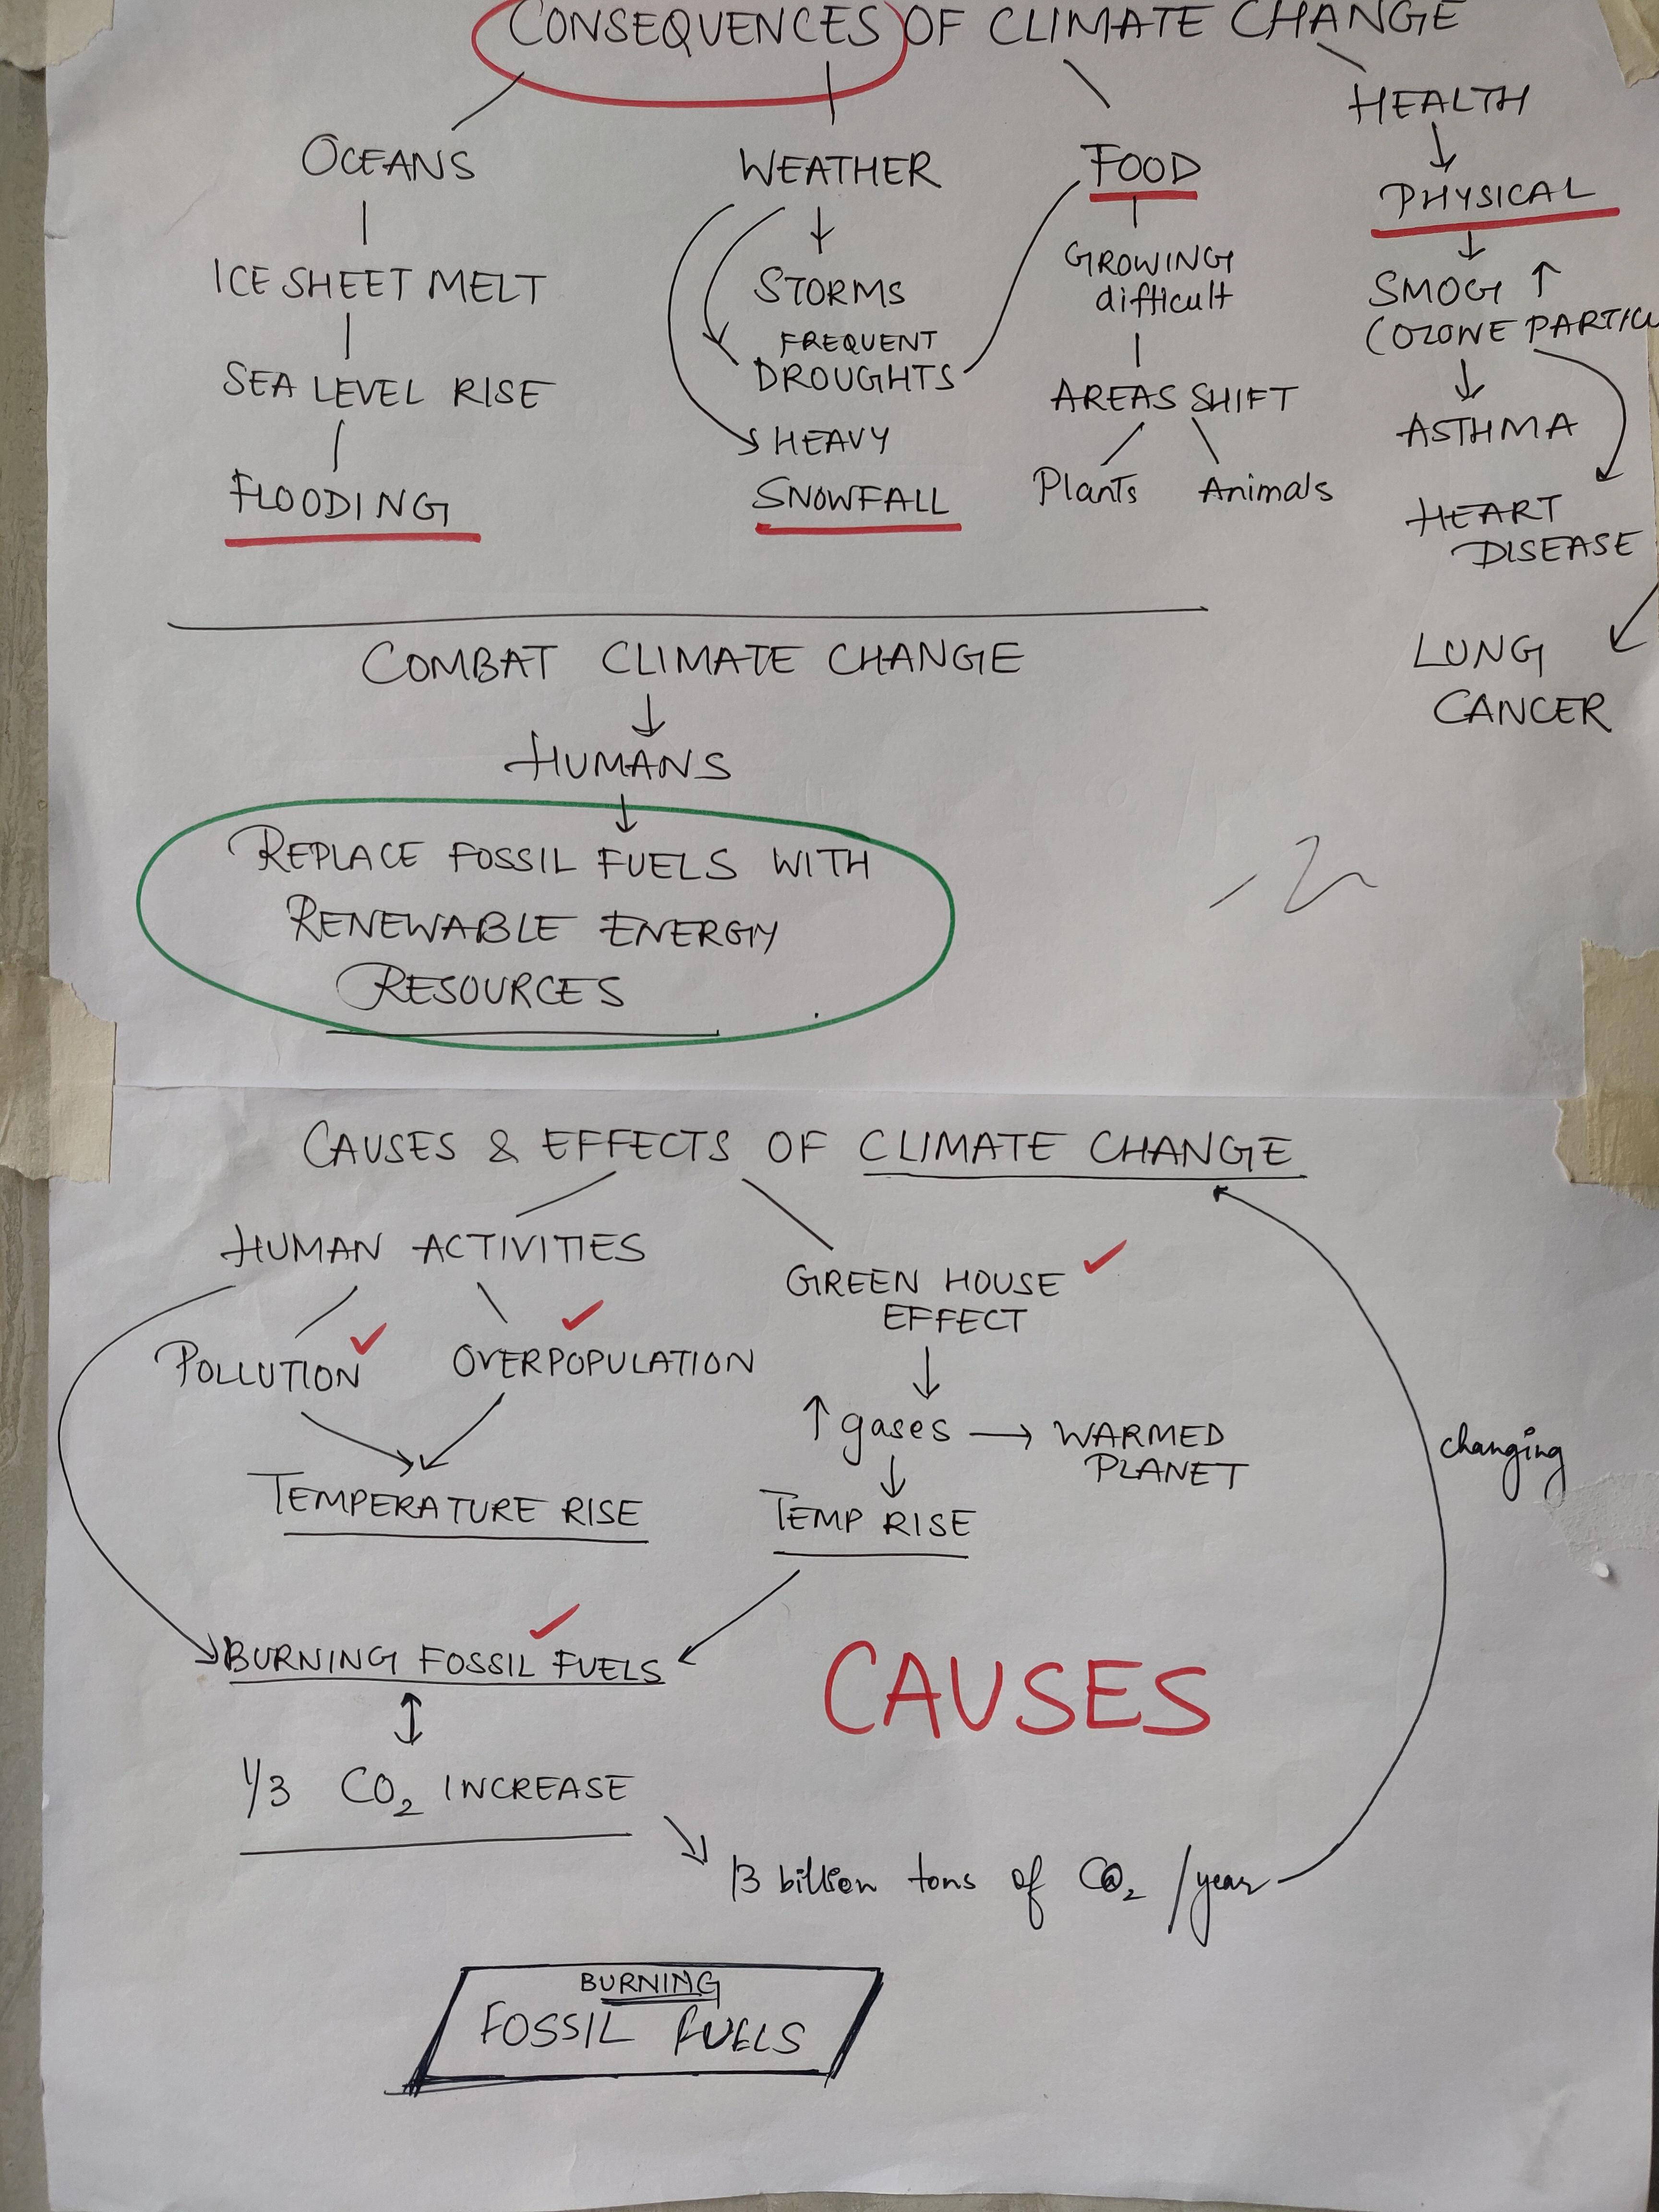 CONSEQUENCES OF CLIMATE CHANGE
OCEANS
ICE SHEET MELT
SEA LEVEL RISE
FLOODING
WEATHER
STORMS
FREQUENT
DROUGHTS
HEAVY
SNOWFALL
FOOD
GROWING
difficult
AREAS SHIFT
Plants Animals
HEALTH
PHYSICAL
SMOG ↑
(OZONE PARTICU
ASTHMA
HEART
DISEASE
LUNG
CANCER
COMBAT CLIMATE CHANGE
HUMANS
REPLACE FOSSIL FUELS WITH
RENEWABLE ENERGY
RESOURCES
CAUSES & EFFECTS OF CLIMATE CHANGE
HUMAN ACTIVITIES
POLLUTION OVERPOPULATION
TEMPERATURE RISE
GREEN HOUSE
EFFECT
↑ gases → WARMED
PLANET
TEMP RISE
changing
BURNING FOSSIL FUELS
CAUSES
1/3 CO₂ INCREASE
13 billion tons of CO₂ /year
BURNING
FOSSIL FUELS